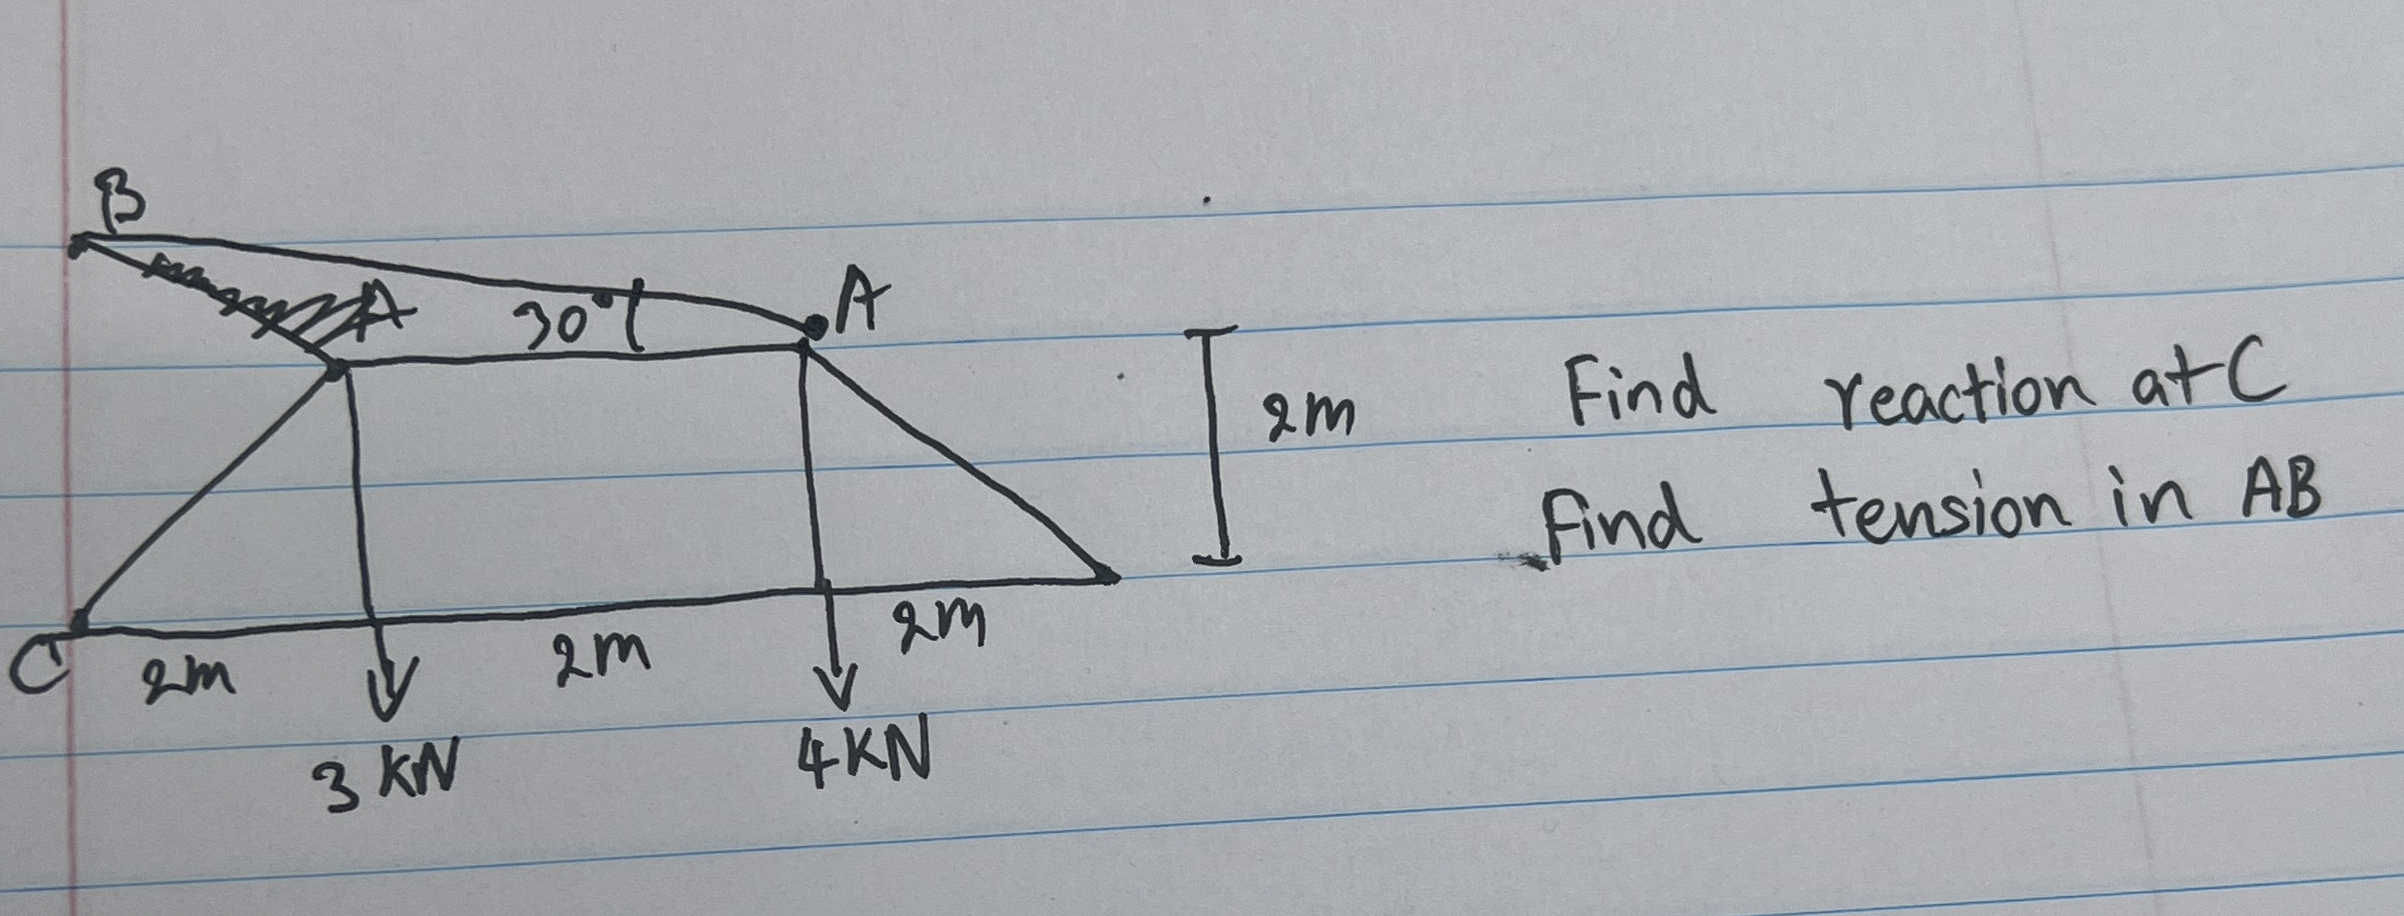 B
A
30°
A
2m
Find reaction at C
Find tension in AB
C
2m
2m
2m
3 KN
4KN